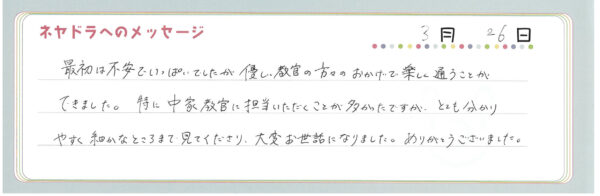 ネヤドラへのメッセージ
3月 26日
最初は不安でいっぱいでしたが 優しい教官の方々のおかげで楽しく通うことが
できました。特に中家教官に担当いただくことが多かたですが、とても分かり
やすく細かなところまで見てくださり、大変お世話になりました。ありがとうございました。